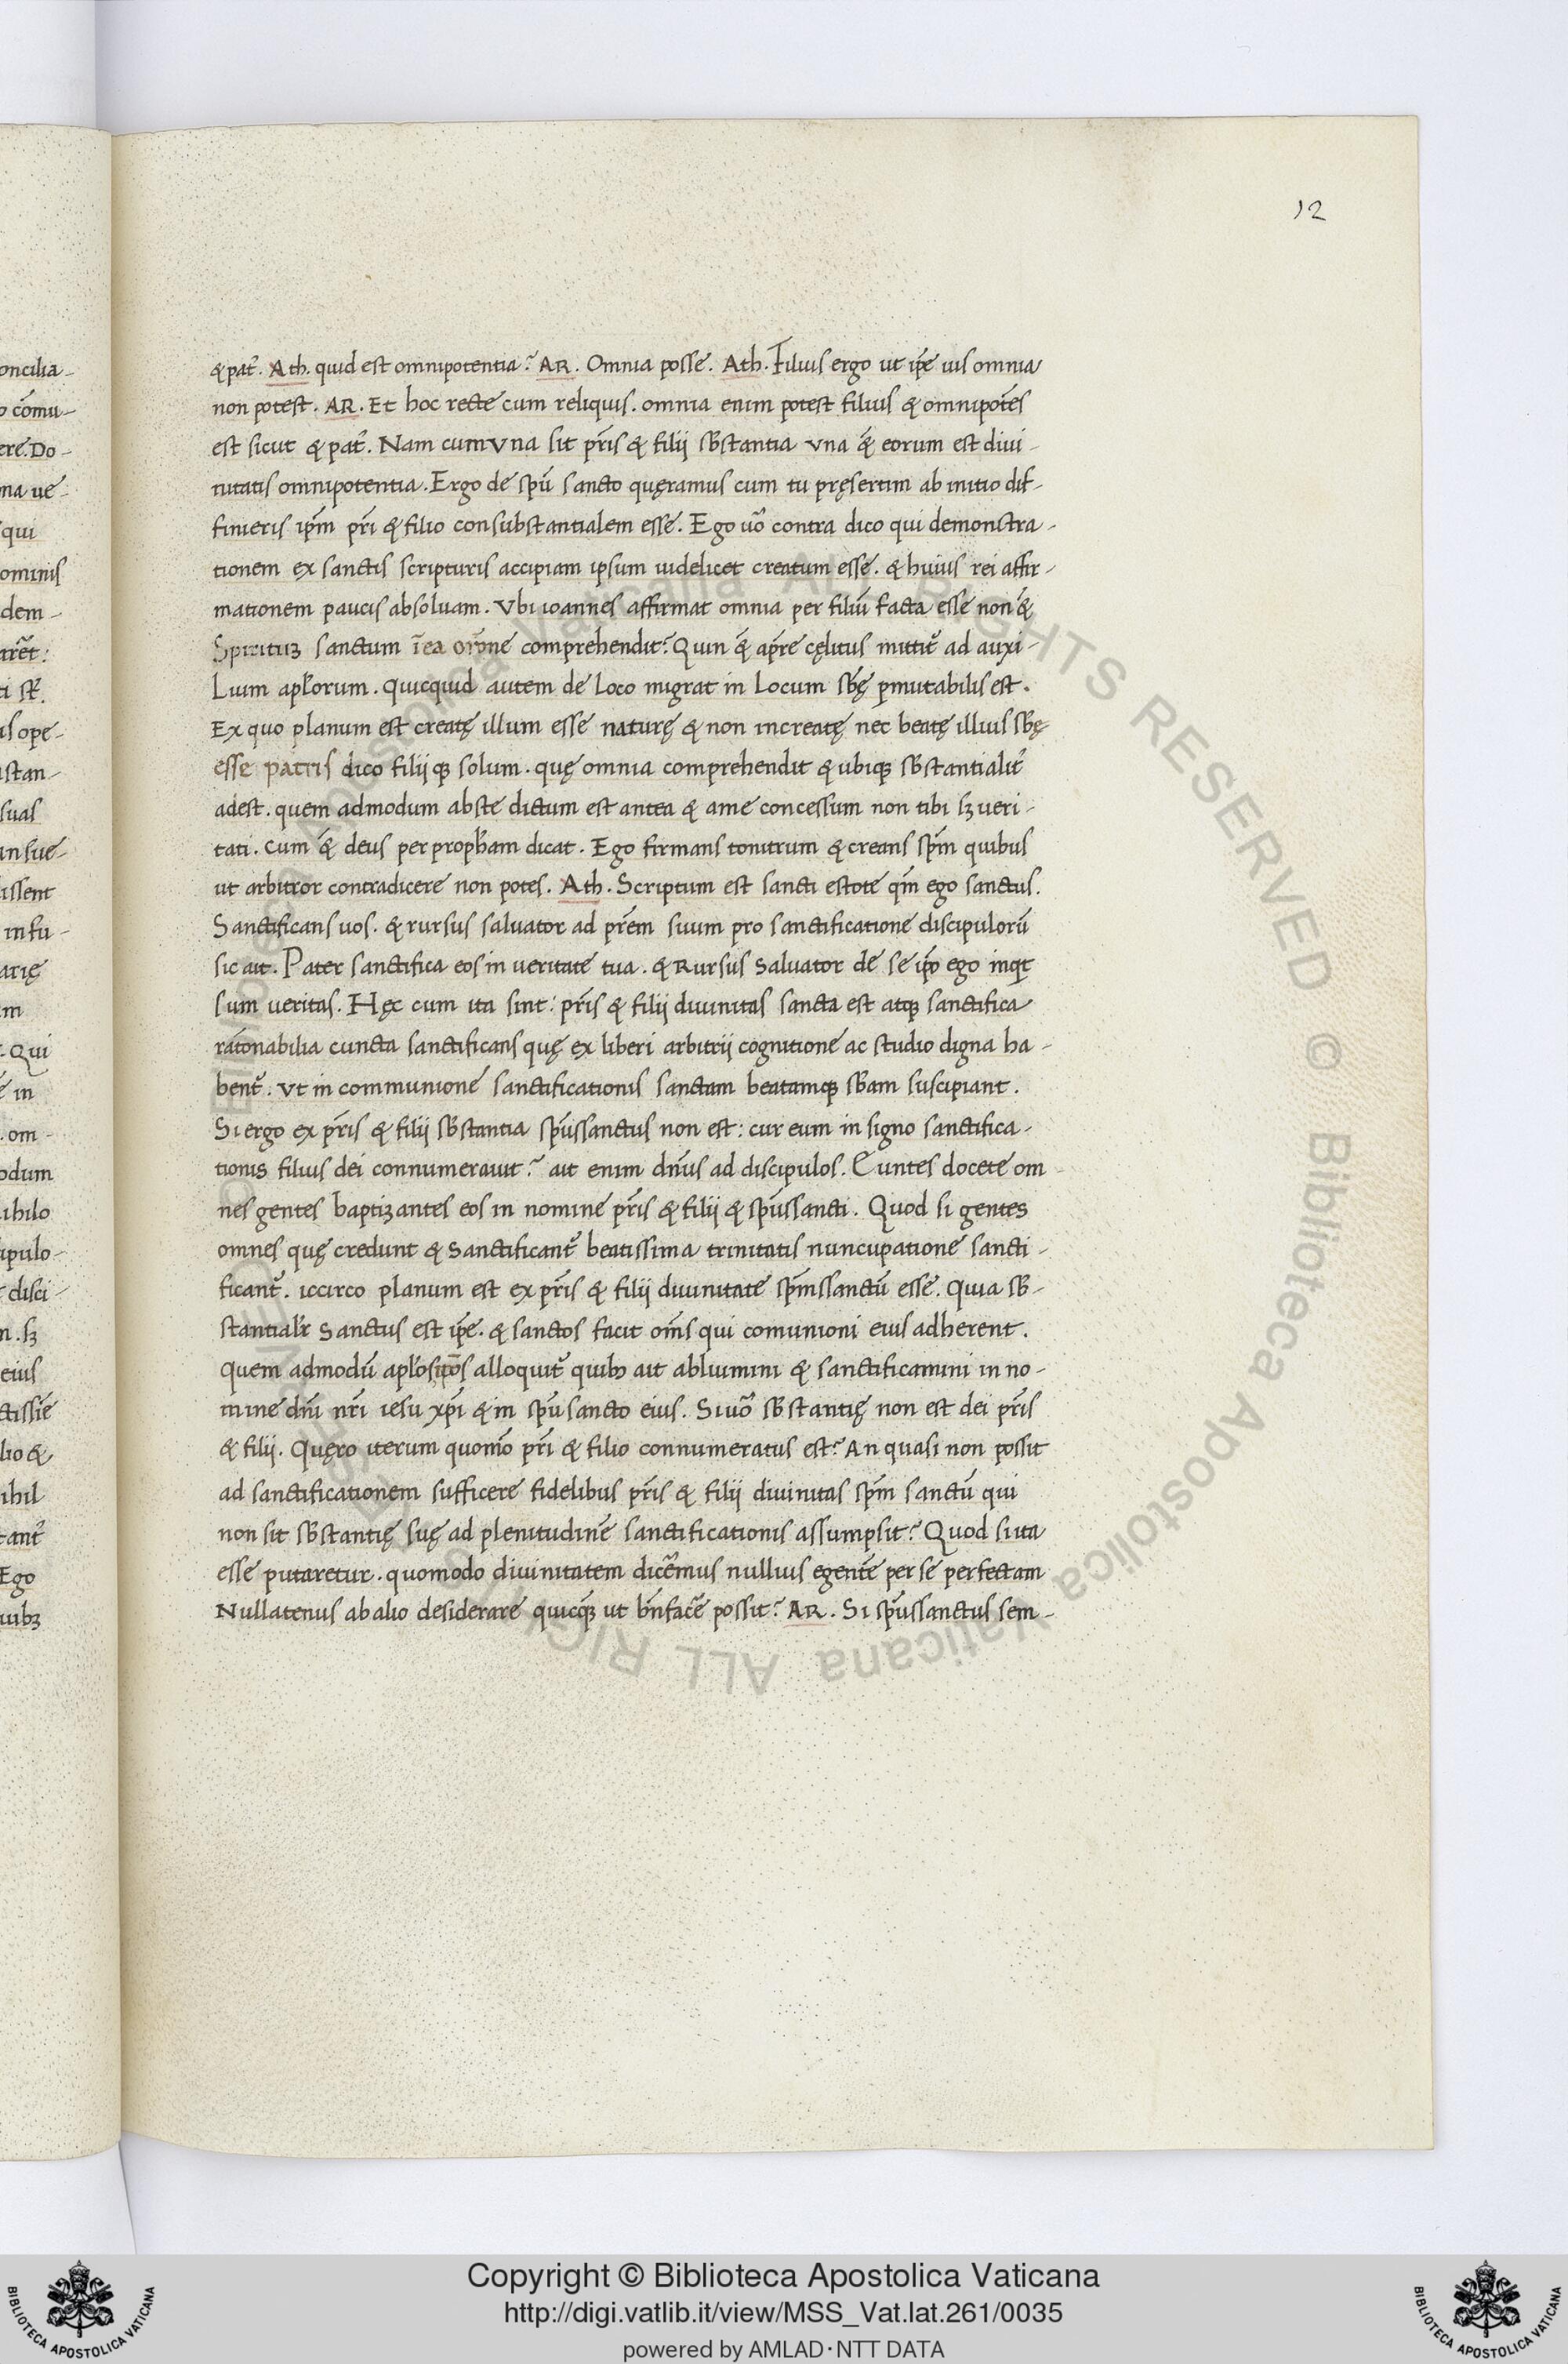 12
oncilia-
& pat̉. Ath. quid est omnipotentia? AR. Omnia posse. Ath. Filius ergo ut ip̄e uis omnia
non potest. AR. Et hoc recte cum reliquis. omnia enim potest filius & omnipotēs
est sicut & pat̉. Nam cum Vna sit pr̄is & filij sƀstantia vna & eorum est diui-
nitatis omnipotentia. Ergo de spū sancto quęramus cum tu pręsertim ab initio dif-
finieris ip̄m pr̄i & filio consubstantialem esse. Ego uõ contra dico qui demonstra-
tionem ex sanctis scripturis accipiam ipsum uidelicet creatum esse. & huius rei affir-
mationem paucis absoluam. Vbi ioannes affirmat omnia per filiū facta esse non &
Spirituʒ sanctum ī ea orōne comprehendit? Quin & a pr̄e cęlitus mittit̉ ad auxi-
Lium apl̄orum. Quicquid autem de Loco migrat in Locum sƀę pmutabilis est.
Ex quo planum est creatę illum esse naturę & non increatę nec beatę illius sƀę
esse patris dico filij qꝫ solum. quę omnia comprehendit & ubiqꝫ sƀstantialit̉
adest. quem admodum abste dictum est antea & ame concessum non tibi sꝫ ueri-
tati. Cum & deus per propħam dicat. Ego firmans tonitrum & creans sp̄m quibus
ut arbitror contradicere non potes. Ath. Scriptum est sancti estote qm̄ ego sanctus.
Sanctificans uos. & rursus saluator ad pr̄em suum pro sanctificatione discipulorū
sic ait. Pater sanctifica eos in ueritate tua. & Rursus Saluator de se ip̄o ego inqt
sum ueritas. Hęc cum ita sint: pr̄is & filij diuinitas sancta est atqꝫ sanctifica
rātonabilia cuncta sanctificans quę ex liberi arbitrij cognitione ac studio digna ha-
bent̉. Vt in communione sanctificationis sanctam beatamqꝫ sƀam suscipiant.
Si ergo ex pr̄is & filij sƀstantia sp̄ussanctus non est: cur eum in signo sanctifica-
tionis filius dei connumerauit? ait enim dn̄us ad discipulos. Euntes docete om-
nes gentes baptizantes eos in nomine pr̄is & filij & sp̄ussancti. Quod si gentes
omnes quę credunt & Sanctificant̉ beatissima trinitatis nuncupatione sancti-
ficant̉. iccirco planum est ex pr̄is & filij diuinitate sp̄mssanctū esse. Quia sƀ-
stantialr̉ Sanctus est ip̄e. & sanctos facit om̄s qui comunioni eius adherent.
Quem admodū apl̄os ip̄os alloquit̉ quibꝫ ait abluimini & sanctificamini in no-
mine dn̄i nr̄i iesu xp̄i & in spū sancto eius. Si uõ sƀstantię non est dei pr̄is
& filij. Quęro iterum quomō pr̄i & filio connumeratus est? An quasi non possit
ad sanctificationem sufficere fidelibus pr̄is & filij diuinitas sp̄m sanctū qui
non sit sƀstantię suę ad plenitudinē sanctificationis assumpsit? Quod si ita
esse putaretur. quomodo diuinitatem dicēmus nullius egentē per se perfectam
Nullatenus ab alio desiderare quicqꝫ ut bn̄facē possit? AR. Si sp̄ussanctus sem-
© Biblioteca Apostolica Vaticana ALL RIGHTS RESERVED
Copyright © Biblioteca Apostolica Vaticana
http://digi.vatlib.it/view/MSS_Vat.lat.261/0035
powered by AMLAD·NTT DATA
BIBLIOTECA APOSTOLICA VATICANA
BIBLIOTECA APOSTOLICA VATICANA